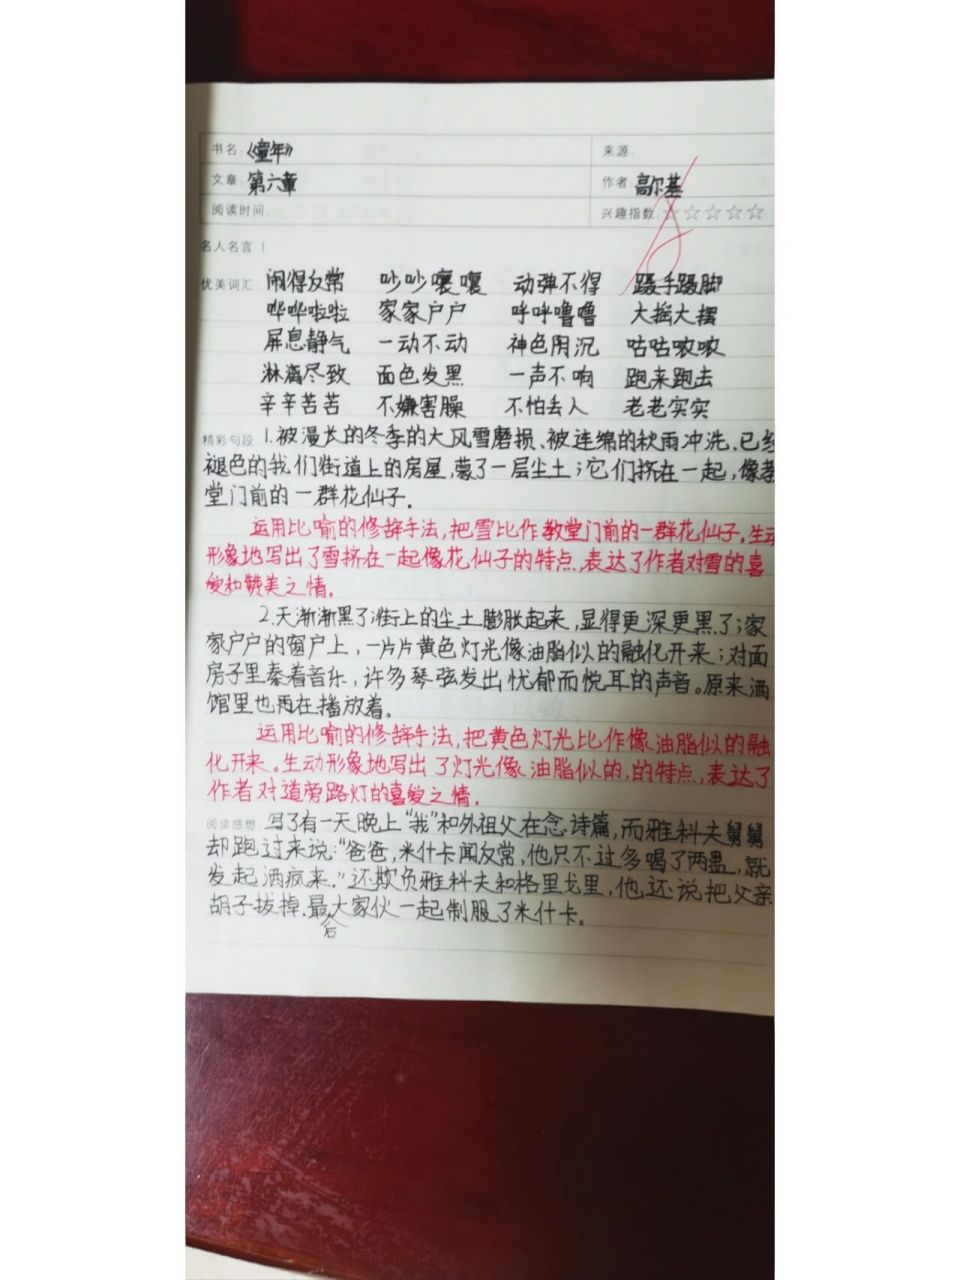 书名：《童年》 来源：
文章：第六章 作者 高尔基
阅读时间： 兴趣指数：☆☆☆☆☆
名人名言（
优美词汇：闹得反常 吵吵嚷嚷 动弹不得 蹑手蹑脚
哗哗啦啦 家家户户 呼呼噜噜 大摇大摆
屏息静气 一动不动 神色阴沉 咕咕哝哝
淋漓尽致 面色发黑 一声不响 跑来跑去
辛辛苦苦 不嫌害臊 不怕丢人 老老实实
精彩句段：1.被漫长的冬季的大风雪磨损、被连绵的秋雨冲洗、已经
褪色的我们街道上的房屋，蒙了一层尘土；它们挤在一起，像教
堂门前的一群花仙子。
运用比喻的修辞手法，把雪比作教堂门前的一群花仙子。生动
形象地写出了雪挤在一起像花仙子的特点，表达了作者对雪的喜
爱和赞美之情。
2.天渐渐黑了街上的尘土膨胀起来，显得更深更黑了；家
家户户的窗户上，一片片黄色灯光像油脂似的融化开来；对面
房子里奏着音乐，许多琴弦发出忧郁而悦耳的声音。原来酒
馆里也再在播放着。
运用比喻的修辞手法，把黄色灯光比作像油脂似的融
化开来。生动形象地写出了灯光像油脂似的，的特点，表达了
作者对道旁路灯的喜爱之情。
阅读感想：写了有一天晚上“我”和外祖父在念诗篇，而雅科夫舅舅
却跑过来说：“爸爸，米什卡闹反常，他只不过多喝了两盅，就
发起酒疯来。”还欺负雅科夫和格里戈里，他还说把父亲
胡子拔掉。最后大家伙一起制服了米什卡。